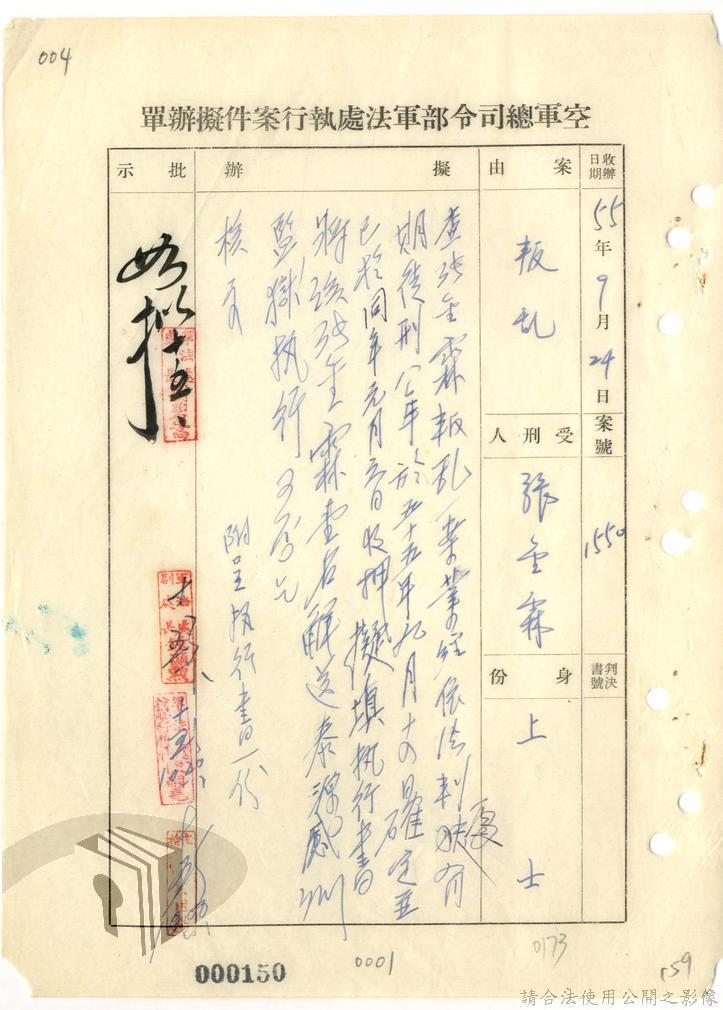 004
空軍總司令部軍法處執行案件擬辦單
收辦日期
55年9月24日
案號
1550
案由
叛乱
受刑人
張金霖
判決書號
身份
上士
擬辦
查張金霖叛乱一案業經依法判處有
期徒刑 年於五十五年九月十四日確定並
已於同年元月 日收押擬填執行書
將該張金霖壹名解送泰源感訓
監獄執行可否乞
核示
附呈執行書一份
批示
如擬
000150
0001
0173
159
請合法使用公開之影像